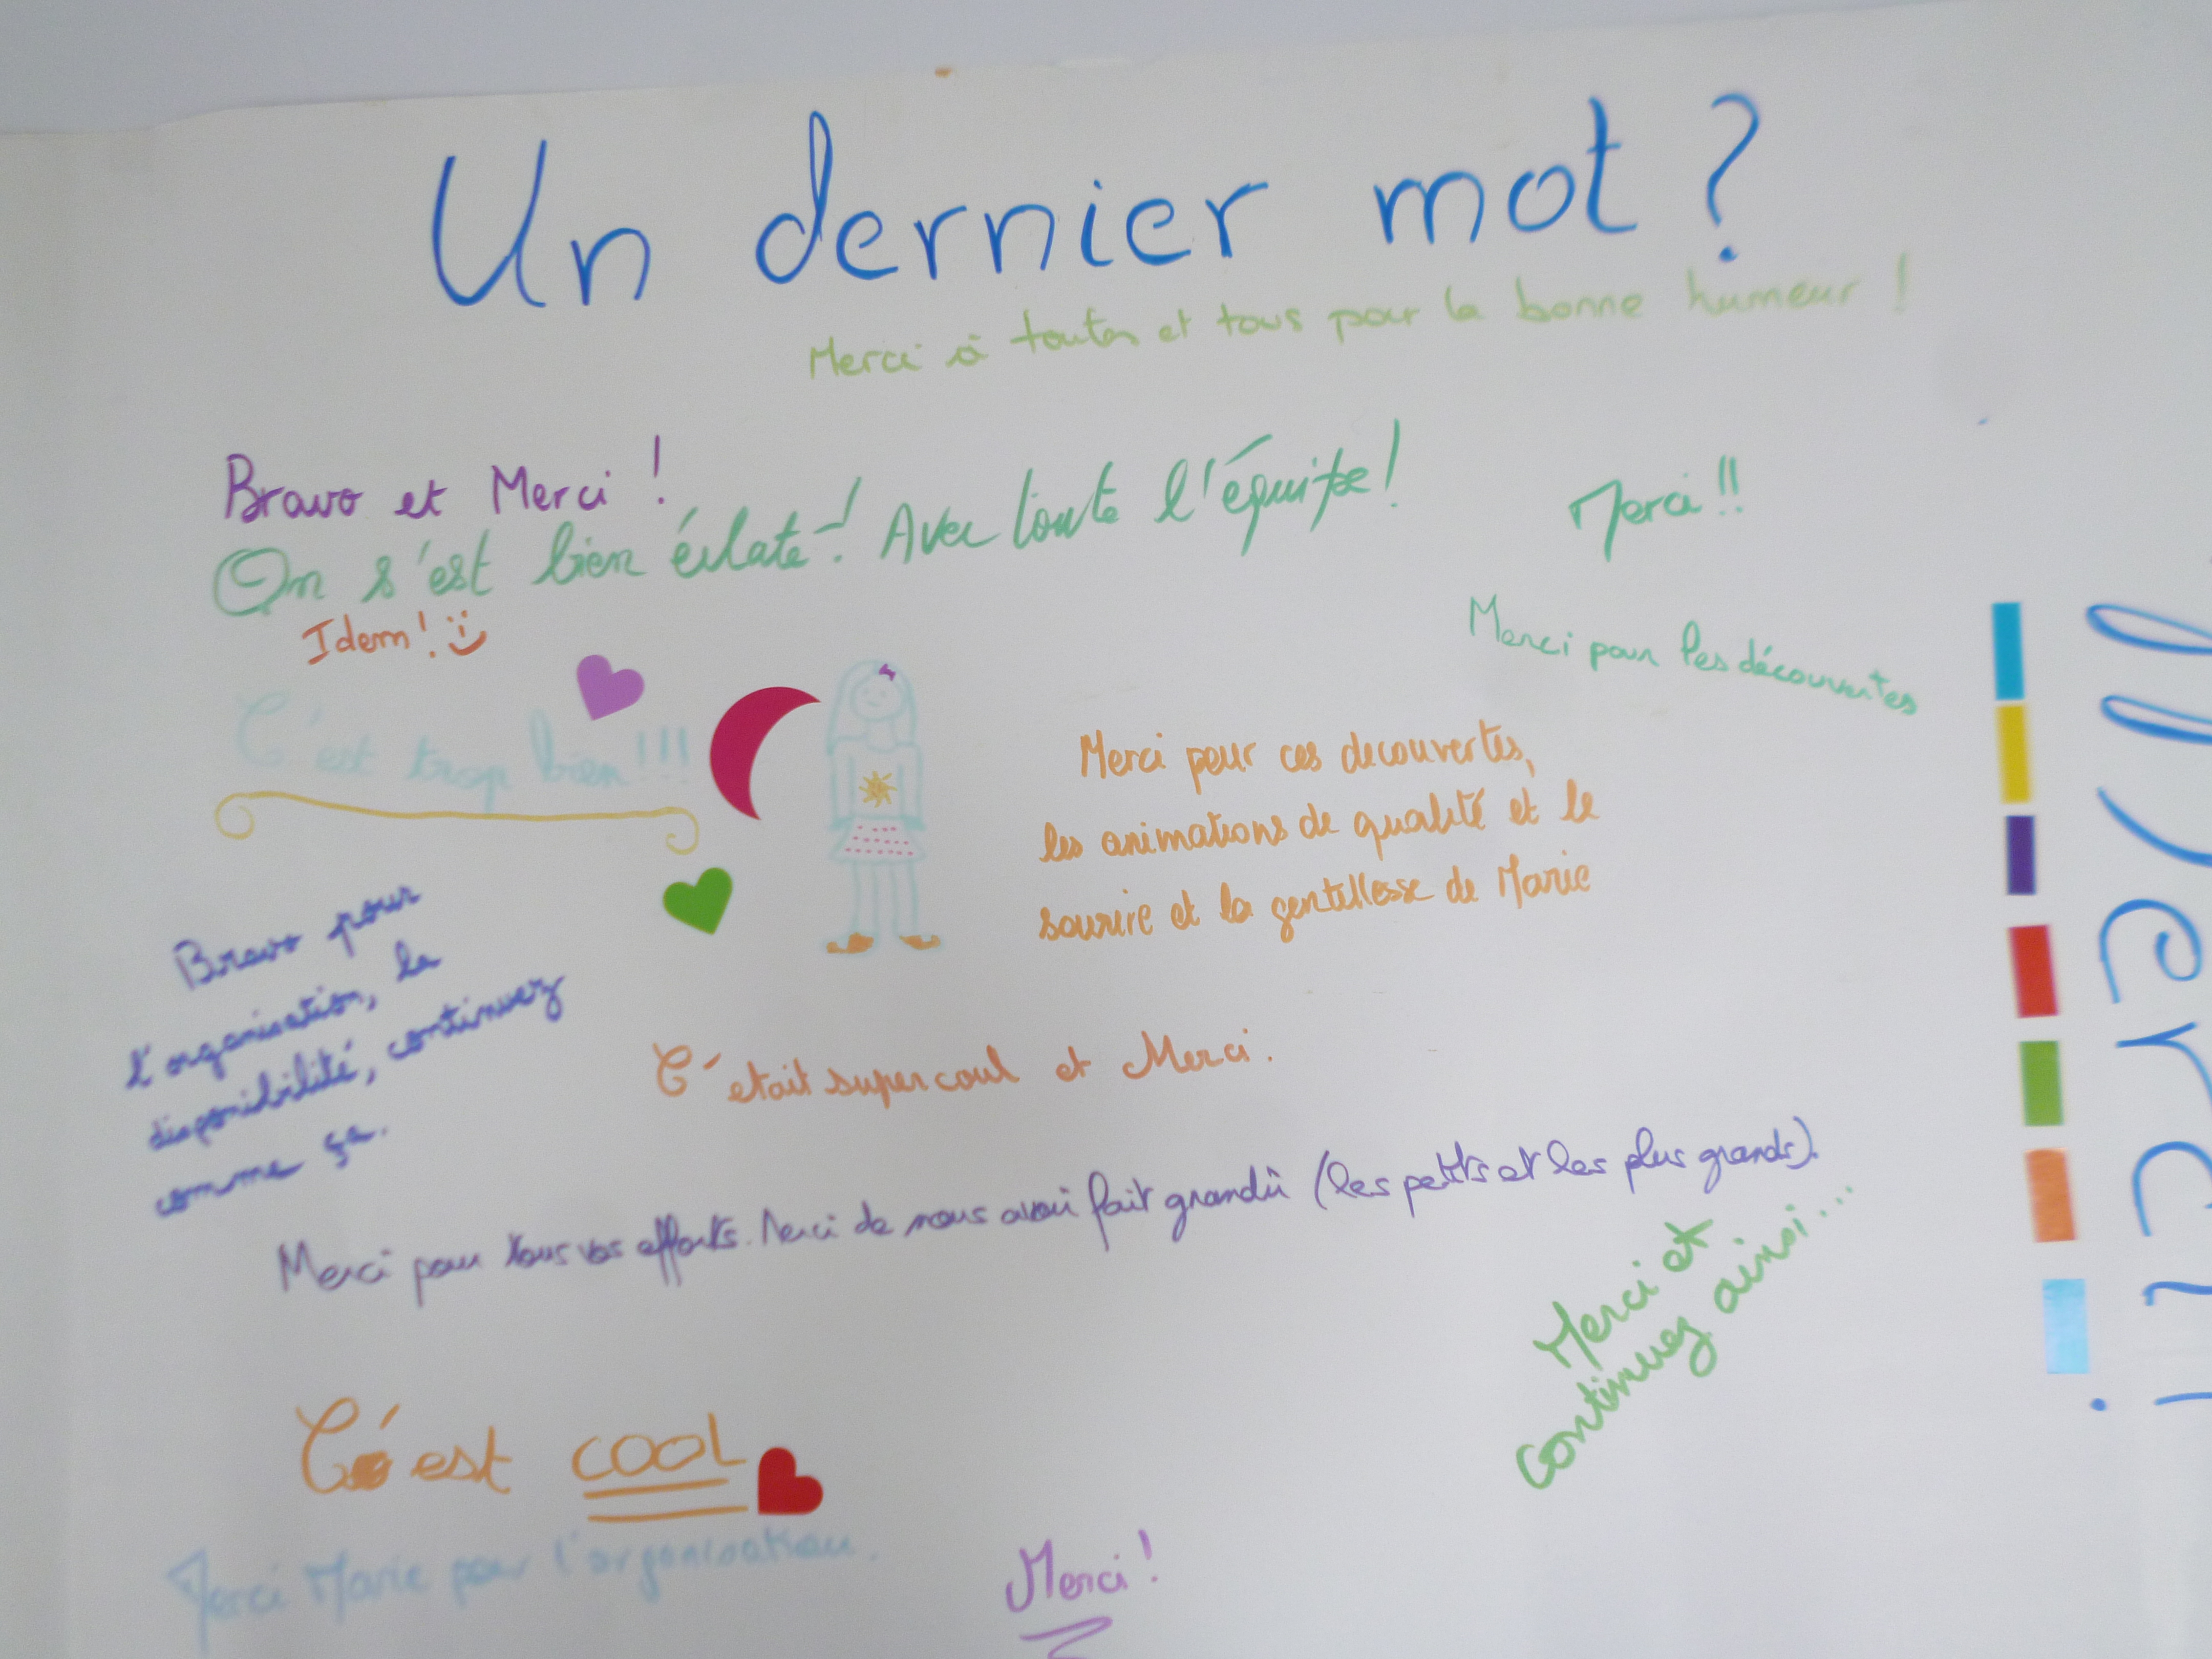 Un dernier mot ?
Merci à toutes et tous pour la bonne humeur !
Bravo et Merci !
On s'est bien éclaté ! Avec toute l'équipe !
Merci !!
Idem ! :)
Merci pour les découvertes
C'est trop bien !!!
Merci pour ces decouvertes,
les animations de qualité et le
sourire et la gentillesse de Marie
Bravo pour
l'organisation, la
disponibilité, continuez
comme ça.
C'etait super coul et Merci.
Merci pour tous vos efforts. Merci de nous avoir fait grandir (les petits et les plus grands).
Merci et
continuez ainsi...
C'est COOL
Merci Marie pour l'organisation.
Merci !
Merci !